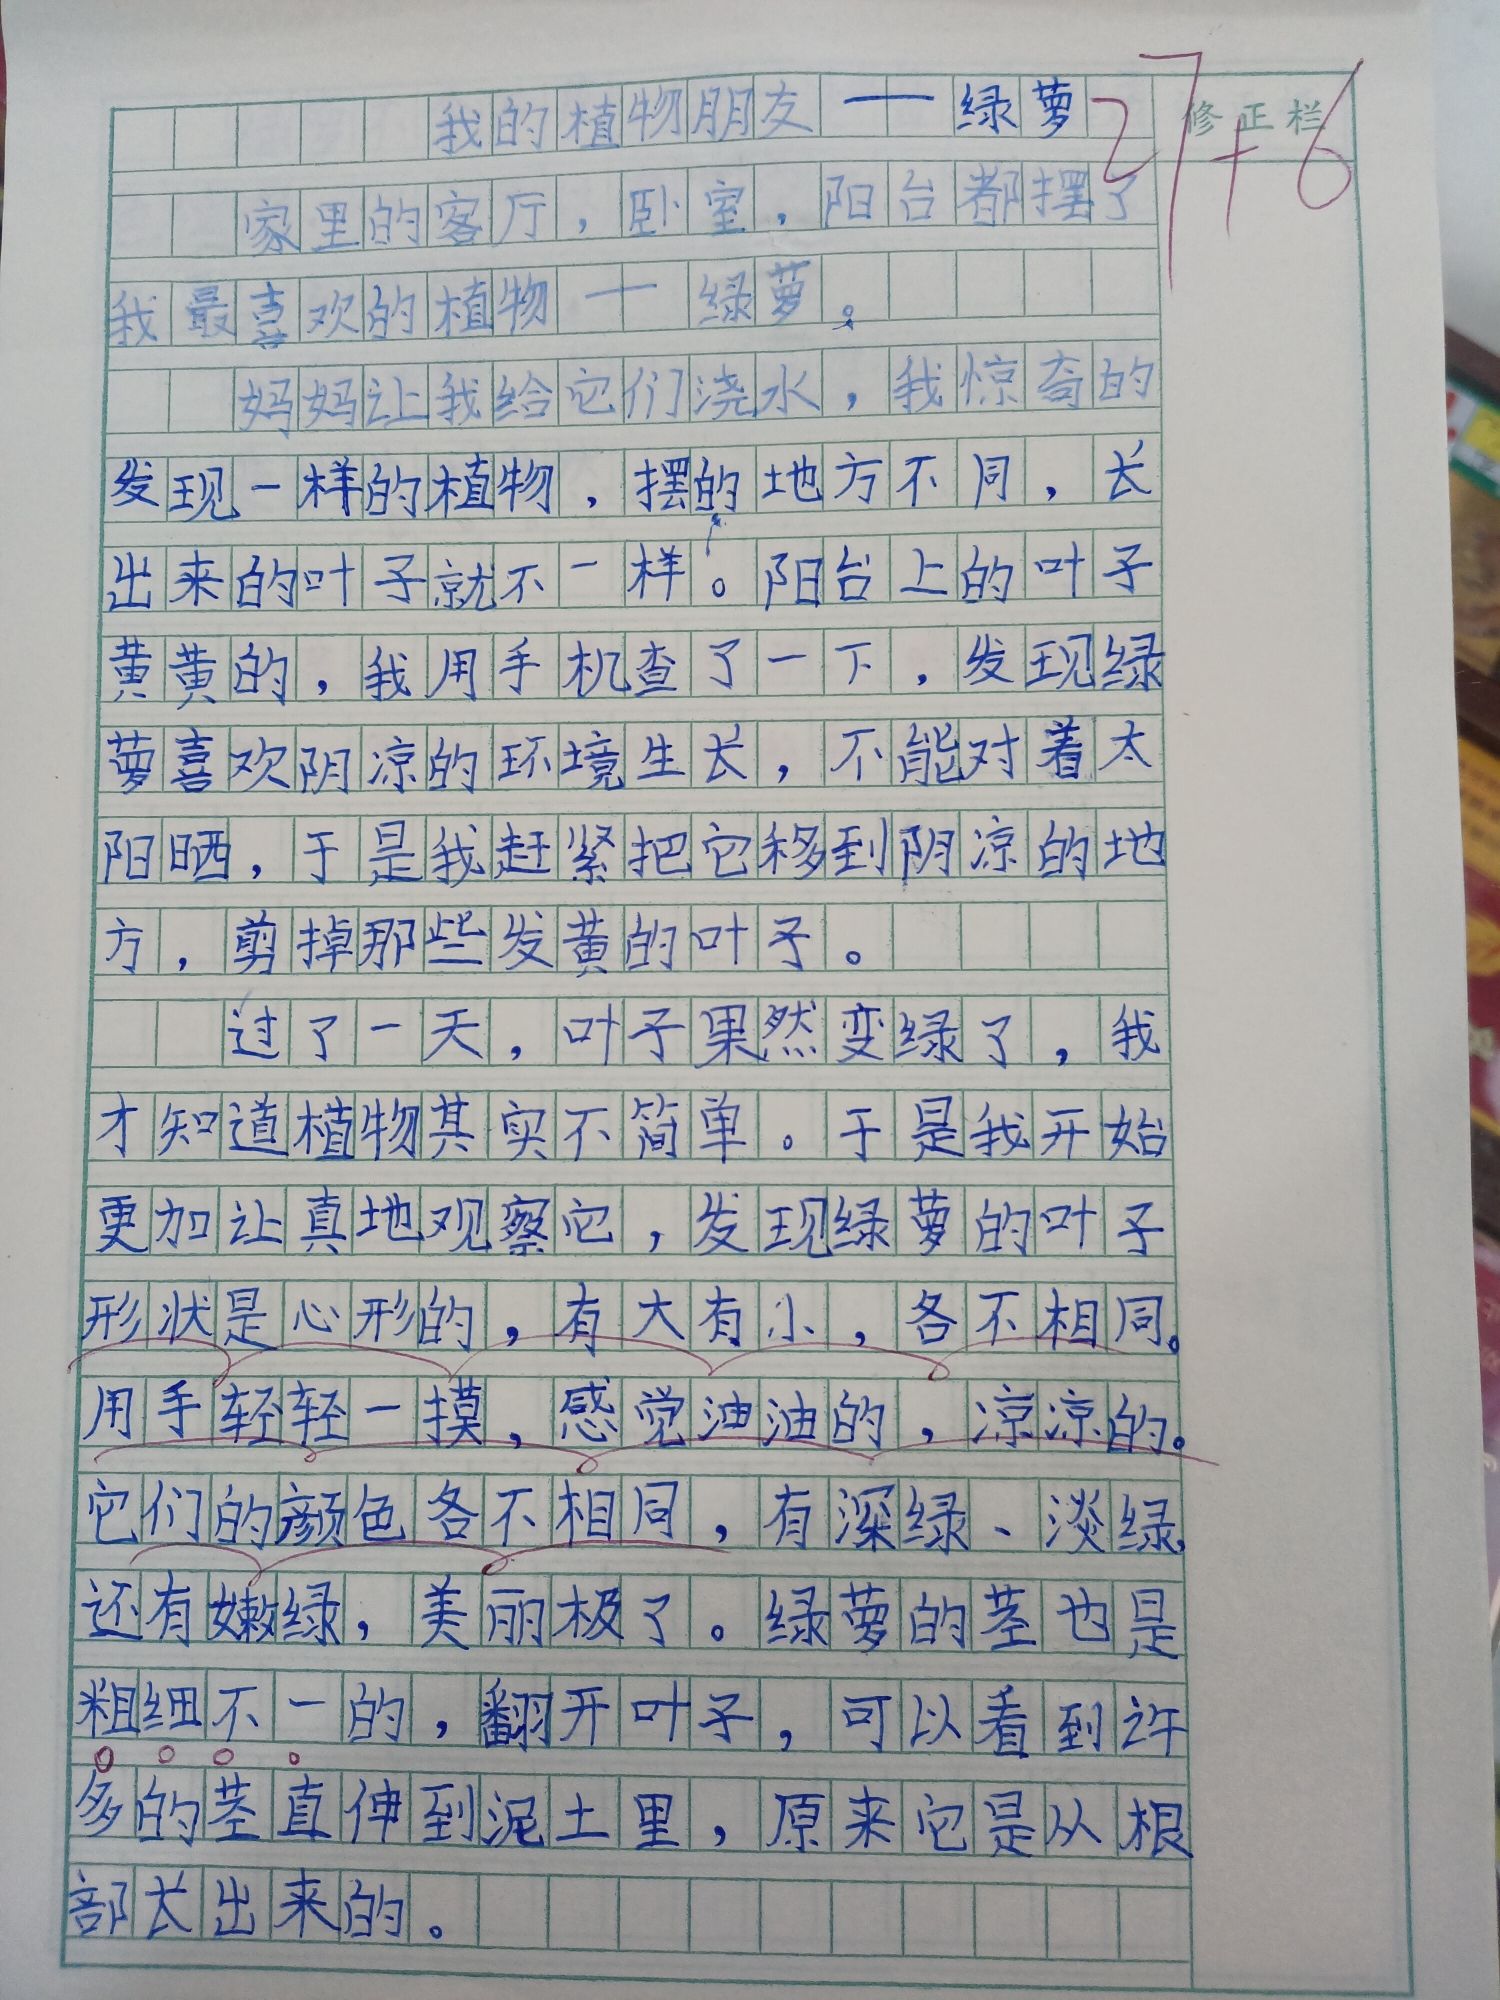 我的植物朋友——绿萝
27+6
修正栏
家里的客厅，卧室，阳台都摆了
我最喜欢的植物——绿萝。
妈妈让我给它们浇水，我惊奇的
发现一样的植物，摆的地方不同，长
出来的叶子就不一样。阳台上的叶子
黄黄的，我用手机查了一下，发现绿
萝喜欢阴凉的环境生长，不能对着太
阳晒，于是我赶紧把它移到阴凉的地
方，剪掉那些发黄的叶子。
过了一天，叶子果然变绿了，我
才知道植物其实不简单。于是我开始
更加让真地观察它，发现绿萝的叶子
形状是心形的，有大有小，各不相同。
用手轻轻一摸，感觉油油的，凉凉的。
它们的颜色各不相同，有深绿、淡绿，
还有嫩绿，美丽极了。绿萝的茎也是
粗细不一的，翻开叶子，可以看到许
多的茎直伸到泥土里，原来它是从根
部长出来的。